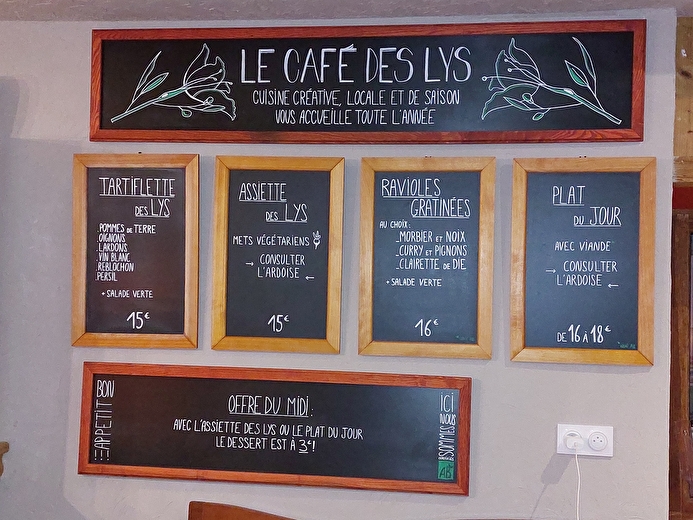 LE CAFÉ DES LYS
CUISINE CRÉATIVE, LOCALE ET DE SAISON
VOUS ACCUEILLE TOUTE L'ANNÉE
TARTIFLETTE
DES LYS
.POMMES DE TERRE
.OIGNONS
.LARDONS
.VIN BLANC
.REBLOCHON
.PERSIL
+ SALADE VERTE
15€
ASSIETTE
DES LYS
METS VÉGÉTARIENS
→ CONSULTER
L'ARDOISE ←
15€
RAVIOLES
GRATINÉES
AU CHOIX:
_MORBIER ET NOIX
_CURRY ET PIGNONS
_CLAIRETTE DE DIE
+ SALADE VERTE
16€
PLAT
DU JOUR
AVEC VIANDE
→ CONSULTER
L'ARDOISE ←
DE 16 À 18€
BON
APPÉTIT
!!!
OFFRE DU MIDI:
AVEC L'ASSIETTE DES LYS OU LE PLAT DU JOUR
LE DESSERT EST À 3€!
ICI
NOUS
SOMMES
AB